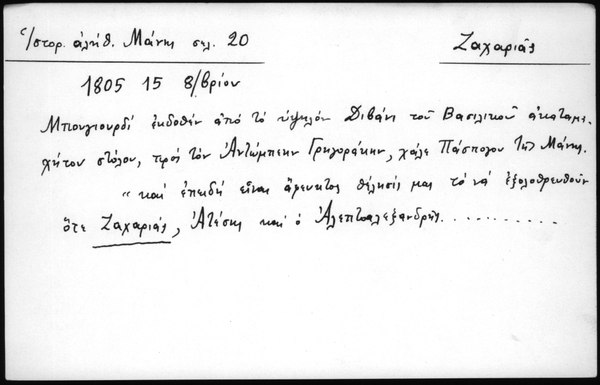 Ἱστορ. ἀλήθ. Μάνης σελ. 20
Ζαχαριᾶς
1805 15 8/βρίου
Μπουγιουρδί ἐκδοθέν ἀπό τό ὑψηλόν Διβάνι τοῦ Βασιλικοῦ ἀκαταμα-
χήτου στόλου, πρός τόν Ἀντώμπεην Γρηγοράκην, χάλε Πάσπογου τῆς Μάνης.
"καί ἐπειδή εἶναι ἄφευκτος θέλησίς μας τό νά ἐξολοθρευθοῦν
ὅτε Ζαχαριᾶς, Ἀτέσης καί ὁ Ἀλεπτοαλεξανδρῆς..............